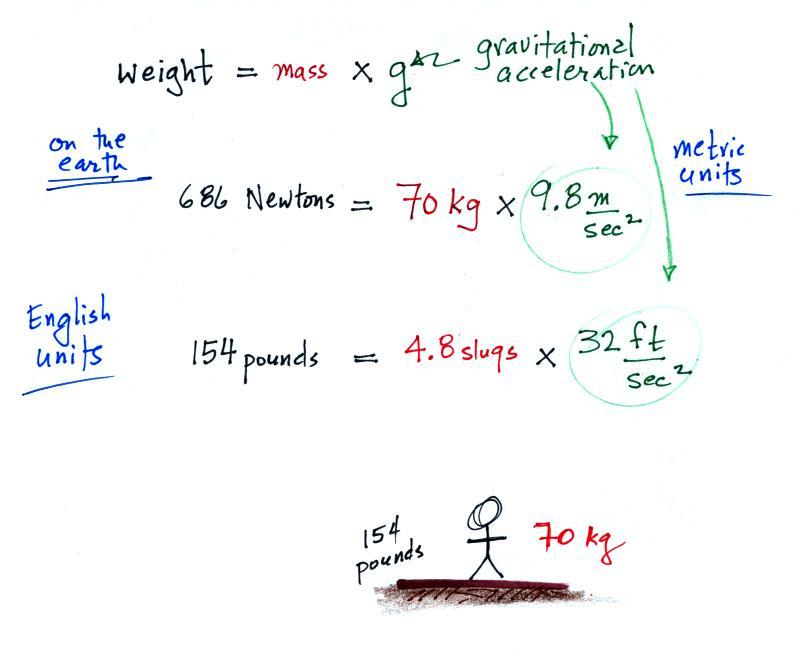 weight = mass × g gravitational
acceleration
on the
earth
metric
units
686 Newtons = 70 kg × 9.8 m/sec²
English
units
154 pounds = 4.8 slugs × 32 ft/sec²
154
pounds
70 kg